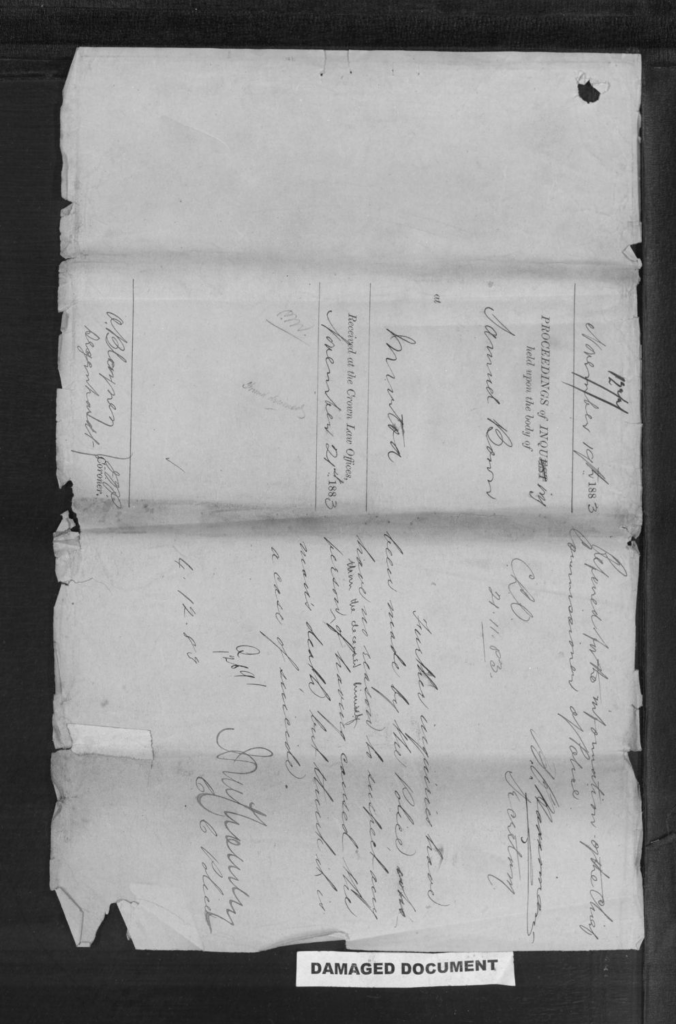 1244
November 19th 1883
PROCEEDINGS of INQUIRY
held upon the body of
Samuel Bown
at
Received at the Crown Law Offices,
November 21st 1883
Coroner.
Referred for the information of the Chief
Commissioner of Police
Secretary
CLO
21.11.83
Further inquiries have
been made by the Police who
have no reason to suspect any
person other than the deceased himself of having caused the
man's death but think it is
a case of suicide.
C Police
4.12.83
DAMAGED DOCUMENT